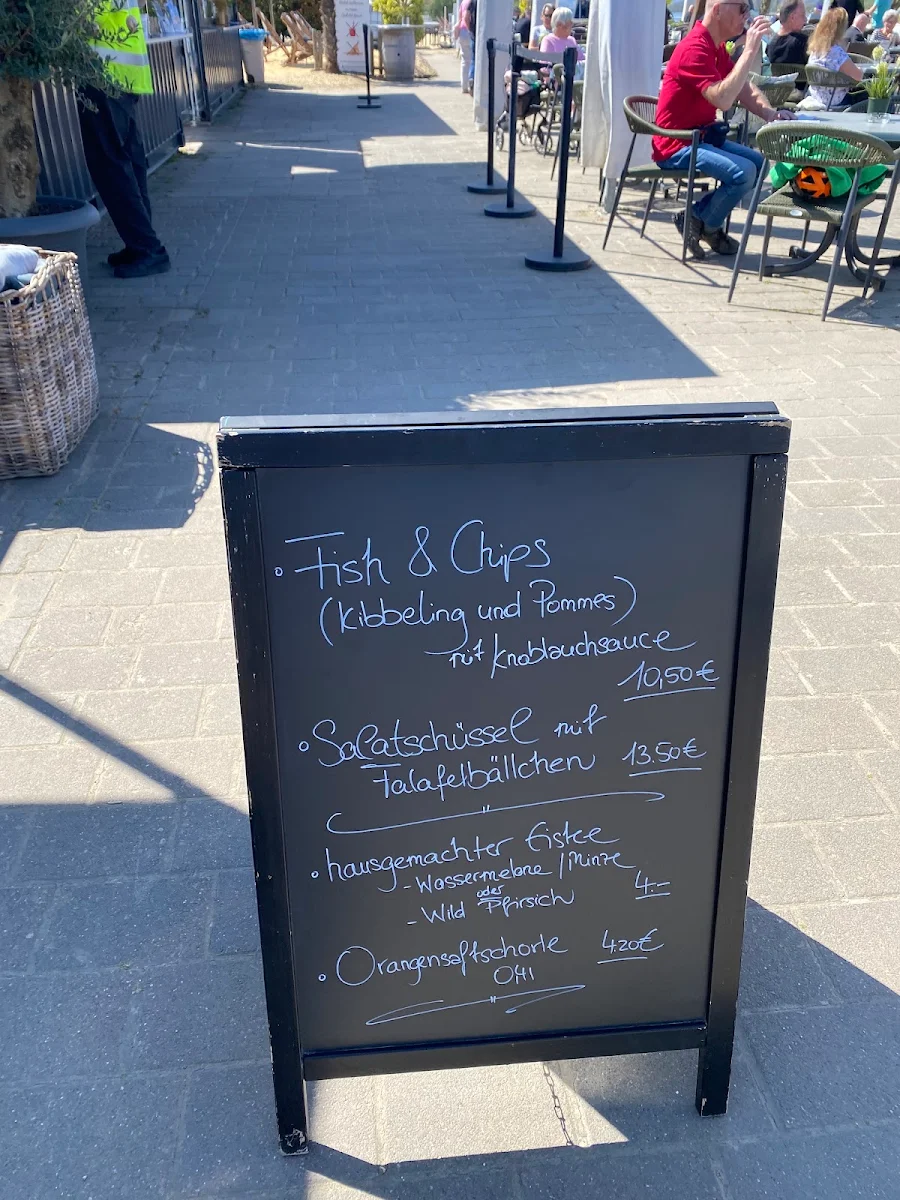 Fish & Chips
(Kibbeling und Pommes)
mit Knoblauchsauce
10,50€
Salatschüssel mit
Falafelbällchen 13.50€
hausgemachter Eistee
- Wassermelone / Minze
oder
- Wild Pfirsich 4.-
Orangensaftschorle 4.20€
0,4l